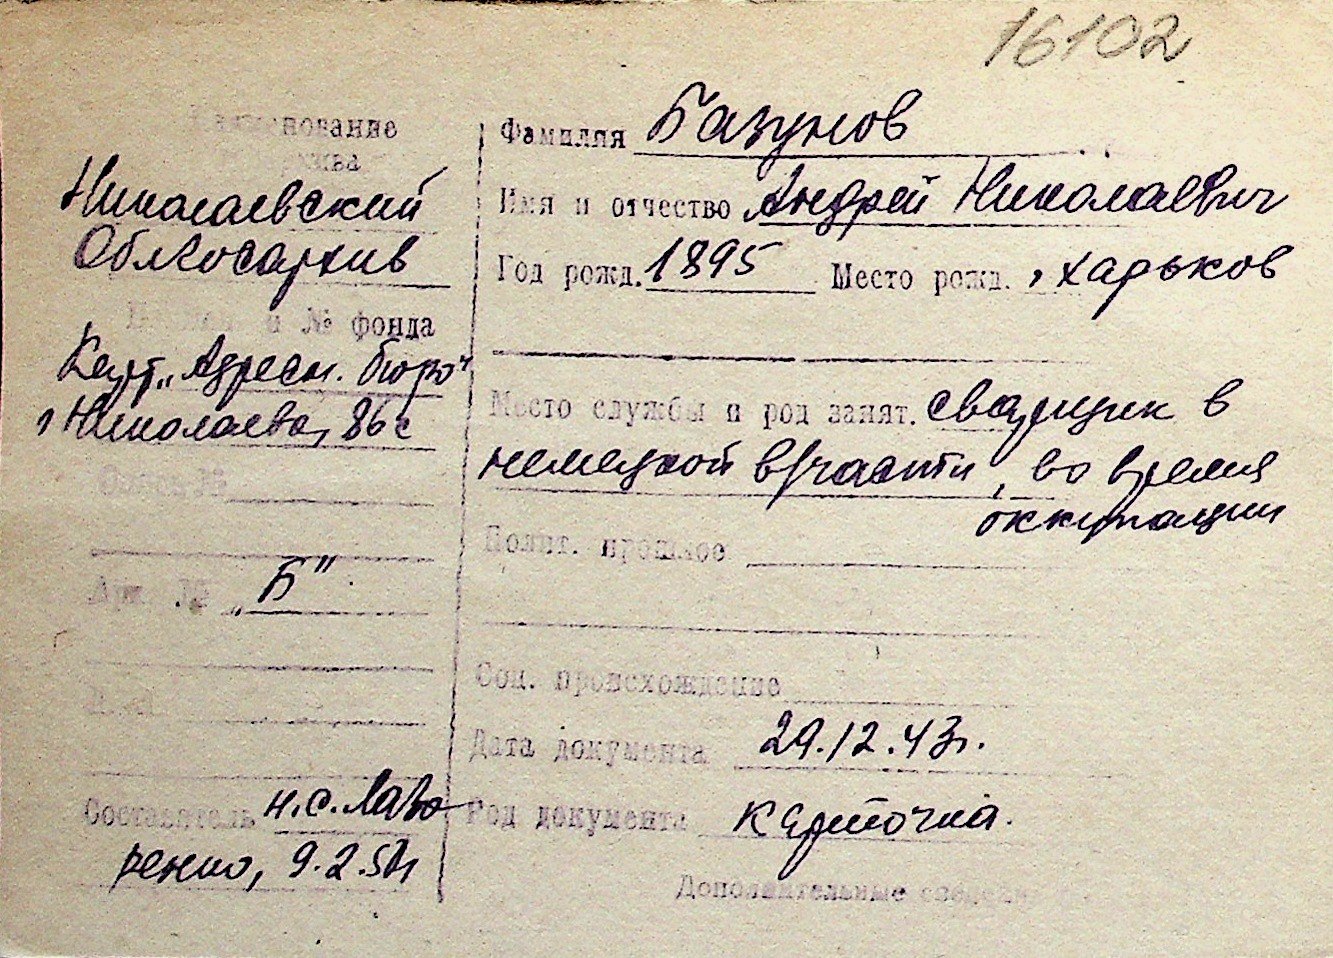 16102
Наименование
архива
Николаевский
Облгосархив
и № фонда
Карт. „Адресн. бюро"
г Николаева, 86с
Опись №
Арх. № „Б"
Составитель Н.С. Лаво-
ренко, 9.2.51г
Фамилия Базунов
Имя и отчество Андрей Николаевич
Год рожд. 1895 Место рожд. г Харьков
Место службы и род занят. сварщик в
немецкой в/части, во время
оккупации
Полит. прошлое
Соц. происхождение
Дата документа 29.12.43г.
Род документа карточка.
Дополнительные сведения